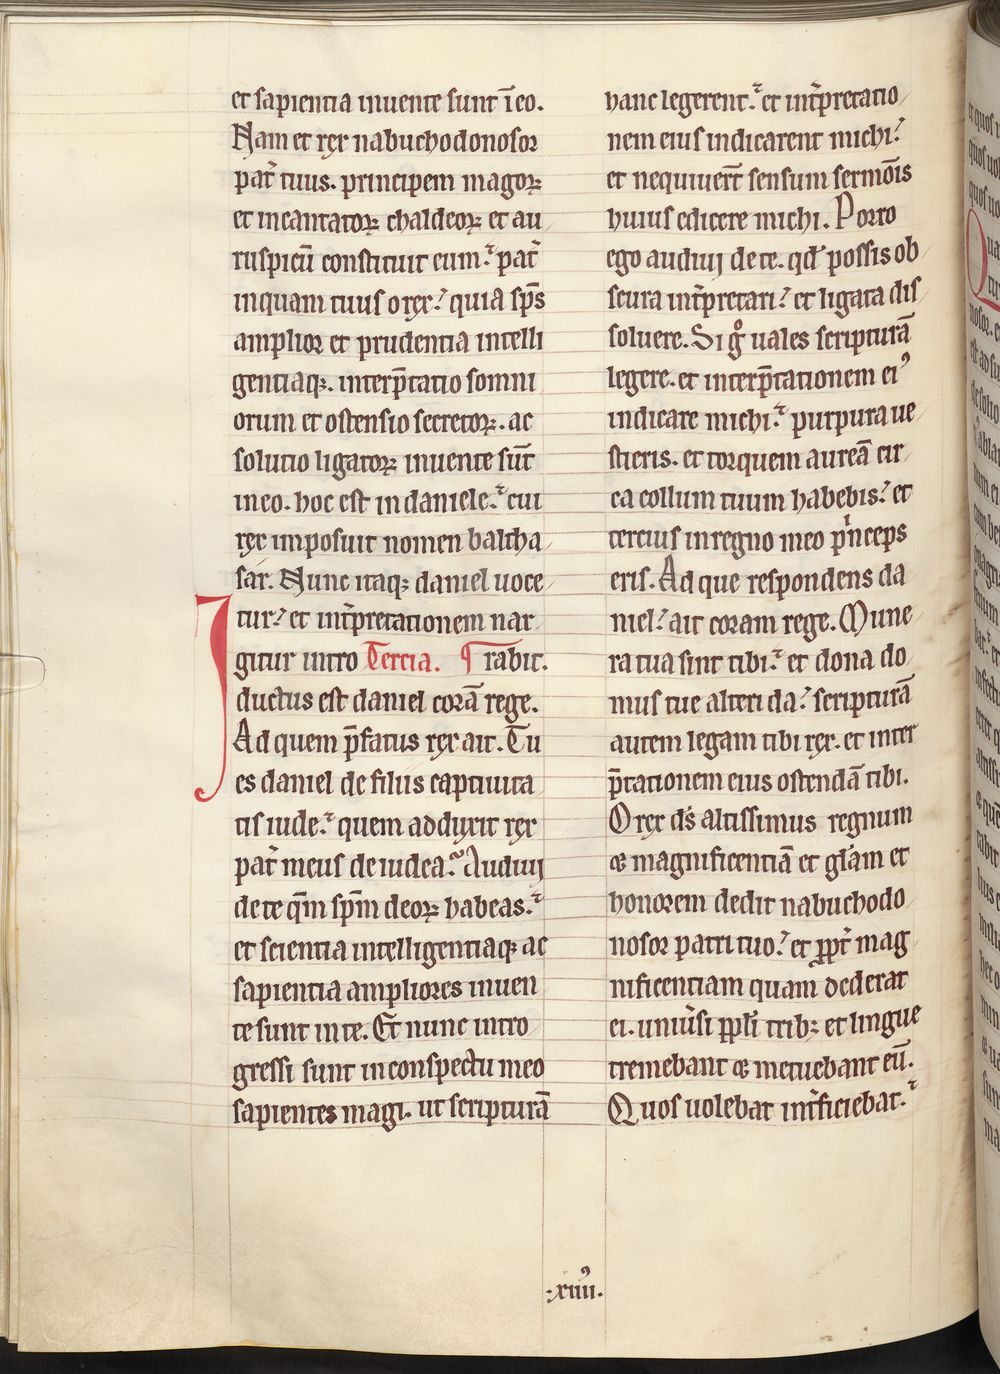 et sapientia inuente sunt ī eo.
Nam et rex nabuchodonosor
pat̄ tuus. principem magoꝝ
et incantatoꝝ chaldeoꝝ et au
ruspicū constituit eum. pat̄
inquam tuus o rex? quia sp̄s
amplior et prudentia intelli
gentiaqꝫ. interp̄tatio somni
orum et ostensio secretoꝝ. ac
solutio ligatoꝝ inuente sūt
in eo. hoc est in daniele. cui
rex imposuit nomen baltha
sar. Nunc itaqꝫ daniel uoce
tur? et int̄pretationem nar
gitur intro Tercia. ¶ rabit.
I
ductus est daniel corā rege.
Ad quem p̄fatus rex ait. Tu
es daniel de filiis captiuita
tis iude. quem adduxit rex
pat̄ meus de iudea? Audiuj
de te qm̄ sp̄m deoꝝ habeas.
et scientia intelligentiaqꝫ ac
sapientia ampliores inuen
te sunt in te. Et nunc intro
gressi sunt in conspectu meo
sapientes magi. ut scripturā
hanc legerent. et int̄pretatio
nem eius indicarent michi?
et nequiuert̄ sensum sermōis
huius edicere michi. Porro
ego audiuj de te. qd̄ possis ob
scura int̄pretari? et ligata dis
soluere. Si gͦ uales scripturā
legere. et interp̄tationem eiꝰ
indicare michi. purpura ue
stieris. et torquem aureā cir
ca collum tuum habebis? et
tercius in regno meo pͥnceps
eris. Ad que respondens da
niel? ait coram rege. Mune
ra tua sint tibi. et dona do
mus tue alteri da? scripturā
autem legam tibi rex. et inter
p̄tationem eius ostendā tibi.
O rex ds̄ altissimus regnum
⁊ magnificentiā et gl̄am et
honorem dedit nabuchodo
nosor patri tuo? et ꝓpt̄ mag
nificentiam quam dederat
ei. uniu̾si ppl̄i tribꝫ et lingue
tremebant ⁊ metuebant eū.
Quos uolebat int̄ficiebat.
.xiiiiꝰ.